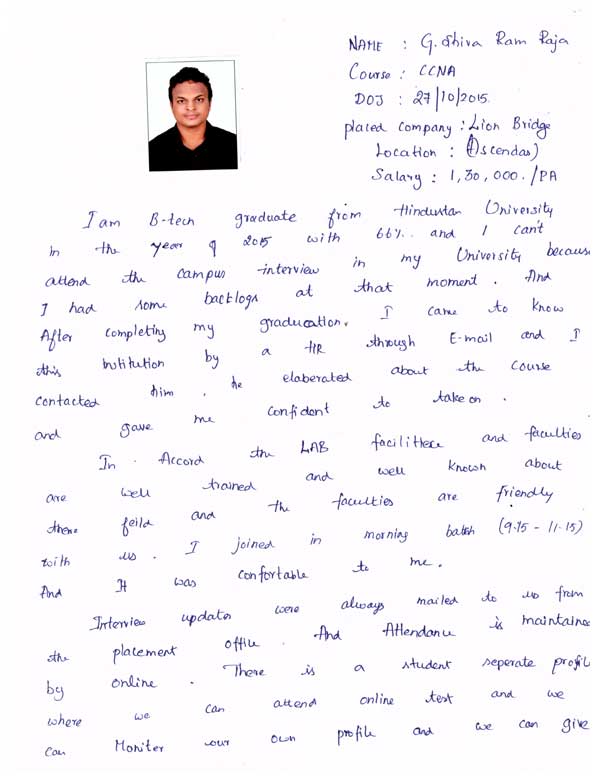 NAME : G. Shiva Ram Raja
Course : CCNA
DOJ : 27/10/2015.
placed company : Lion Bridge
Location : (Ascendas)
Salary : 1,30,000./PA
I am B-tech graduate from Hindustan University
In the year of 2015 with 66%. and I can't
attend the campus interview in my University because
I had some backlogs at that moment. And
After completing my graducation. I came to know
this Institution by a HR through E-mail and I
contacted him. he elaberated about the course
and gave me confident to take on.
In. Accord the LAB facilitiece and faculties
are well trained and well known about
there feild and the faculties are friendly
with us. I joined in morning batsh (9.15 - 11.15)
And It was confortable to me.
Interview updates were always mailed to us from
the placement office. And Attendance is maintained
by online. There is a student seperate profile
where we can attend online test and we
can Moniter our own profile and we can give